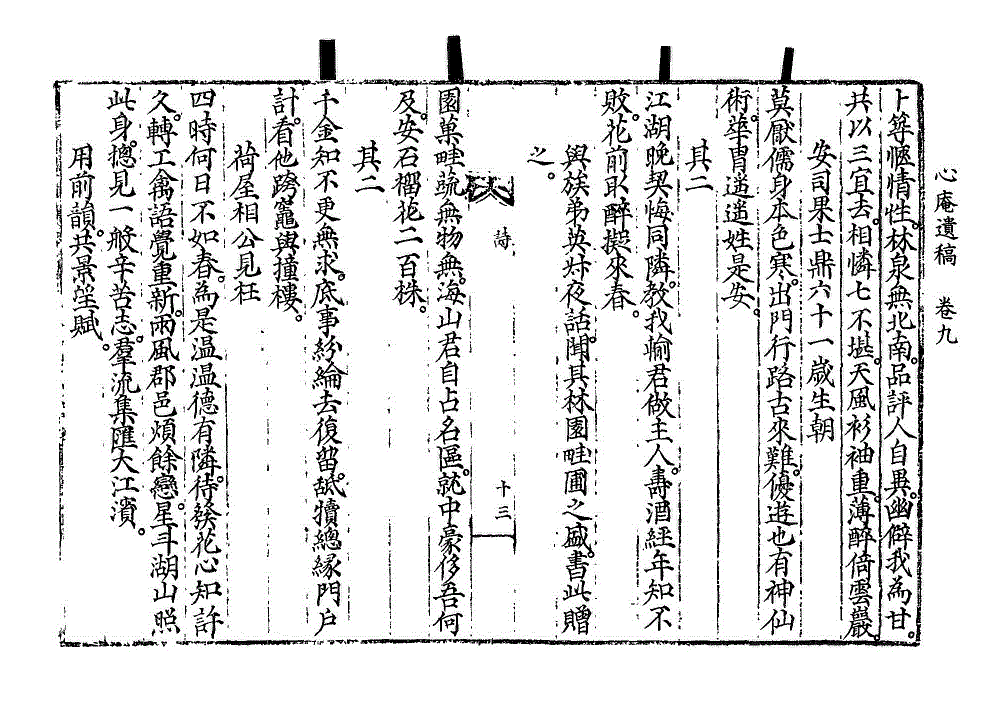 心庵遺稿　卷九
卜築愜情性。林泉無北南。品評人自異。幽僻我爲甘。
共以三宜去。相憐七不堪。天風衫袖重。薄醉倚雲巖。
安司果士鼎六十一歲生朝
莫厭儒身本色寒。出門行路古來難。優遊也有神仙
術。華冑遙遙姓是安。
其二
江湖晚契悔同隣。教我輸君做主人。壽酒經年知不
敗。花前取醉擬來春。
與族弟英叔夜話。聞其林園畦圃之盛。書此贈
之。
詩
十三
園菓畦蔬無物無。海山君自占名區。就中豪侈吾何
及。安石榴花二百株。
其二
千金知不更無求。底事紛綸去復留。舐犢總緣門戶
計。看他跨竈與撞樓。
荷屋相公見枉
四時何日不如春。爲是温温德有隣。待發花心知許
久。轉工禽語覺重新。兩風郡邑煩餘戀。星斗湖山照
此身。摠見一般辛苦志。羣流集匯大江濱。
用前韻。共景㙜賦。